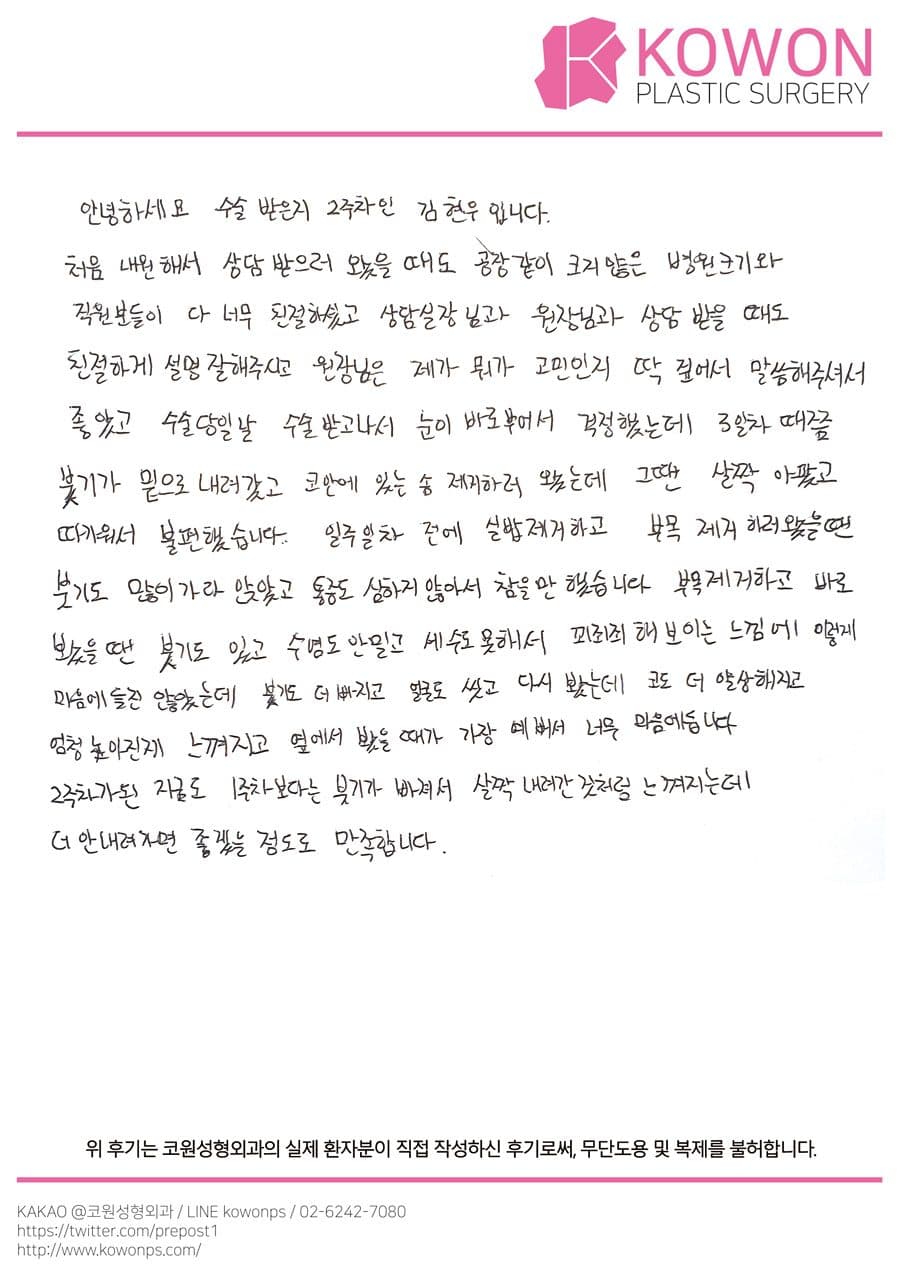 KOWON
PLASTIC SURGERY
안녕하세요 수술 받은지 2주차인 김현우 입니다.
처음 내원해서 상담 받으러 왔을때도 공장같이 크지않은 병원크기와
직원분들이 다 너무 친절하셨고 상담실장님과 원장님과 상담 받을 때도
친절하게 설명 잘해주시고 원장님은 제가 뭐가 고민인지 딱 짚어서 말씀해주셔서
좋았고 수술당일날 수술받고나서 눈이 바로부어서 걱정했는데 3일차 때쯤
붓기가 밑으로 내려갔고 코안에 있는 솜 제거하러 왔는데 그땐 살짝 아팠고
따가워서 불편했습니다. 일주일차 전에 실밥제거하고 부목 제거 하러왔을땐
붓기도 많이 가라 앉았고 통증도 심하지 않아서 참을만 했습니다 부목제거하고 바로
봤을 땐 붓기도 있고 수염도 안밀고 세수도 못해서 꾀죄죄 해 보이는 느낌에 이렇게
마음에 들진 않았는데 붓기도 더 빠지고 얼굴도 씻고 다시 봤는데 코도 더 얄상해지고
엄청 높아진게 느껴지고 옆에서 봤을 때가 가장 예뻐서 너무 마음에듭니다
2주차가된 지금도 1주차보다는 붓기가 빠져서 살짝 내려간 것처럼 느껴지는데
더 안내려가면 좋겠을 정도로 만족합니다.
위 후기는 코원성형외과의 실제 환자분이 직접 작성하신 후기로써, 무단도용 및 복제를 불허합니다.
KAKAO @코원성형외과 / LINE kowonps / 02-6242-7080
https://twitter.com/prepost1
http://www.kowonps.com/